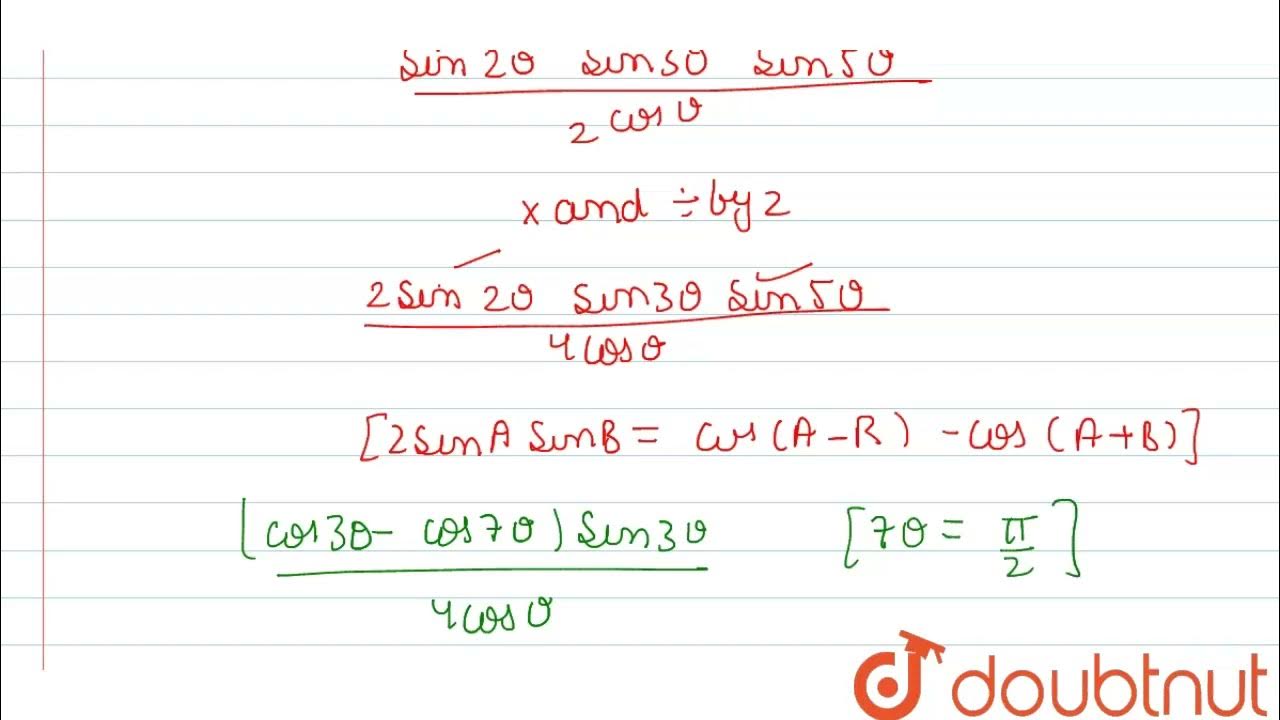 sin 2θ sin3θ sin5θ
2 cosθ
x and ÷ by 2
2 sin 2θ sin3θ sin5θ
4cosθ
[2sinA sinB = cos(A-B) -cos (A+B)]
(cos3θ- cos7θ) sin3θ [7θ = π/2]
4cosθ
doubtnut